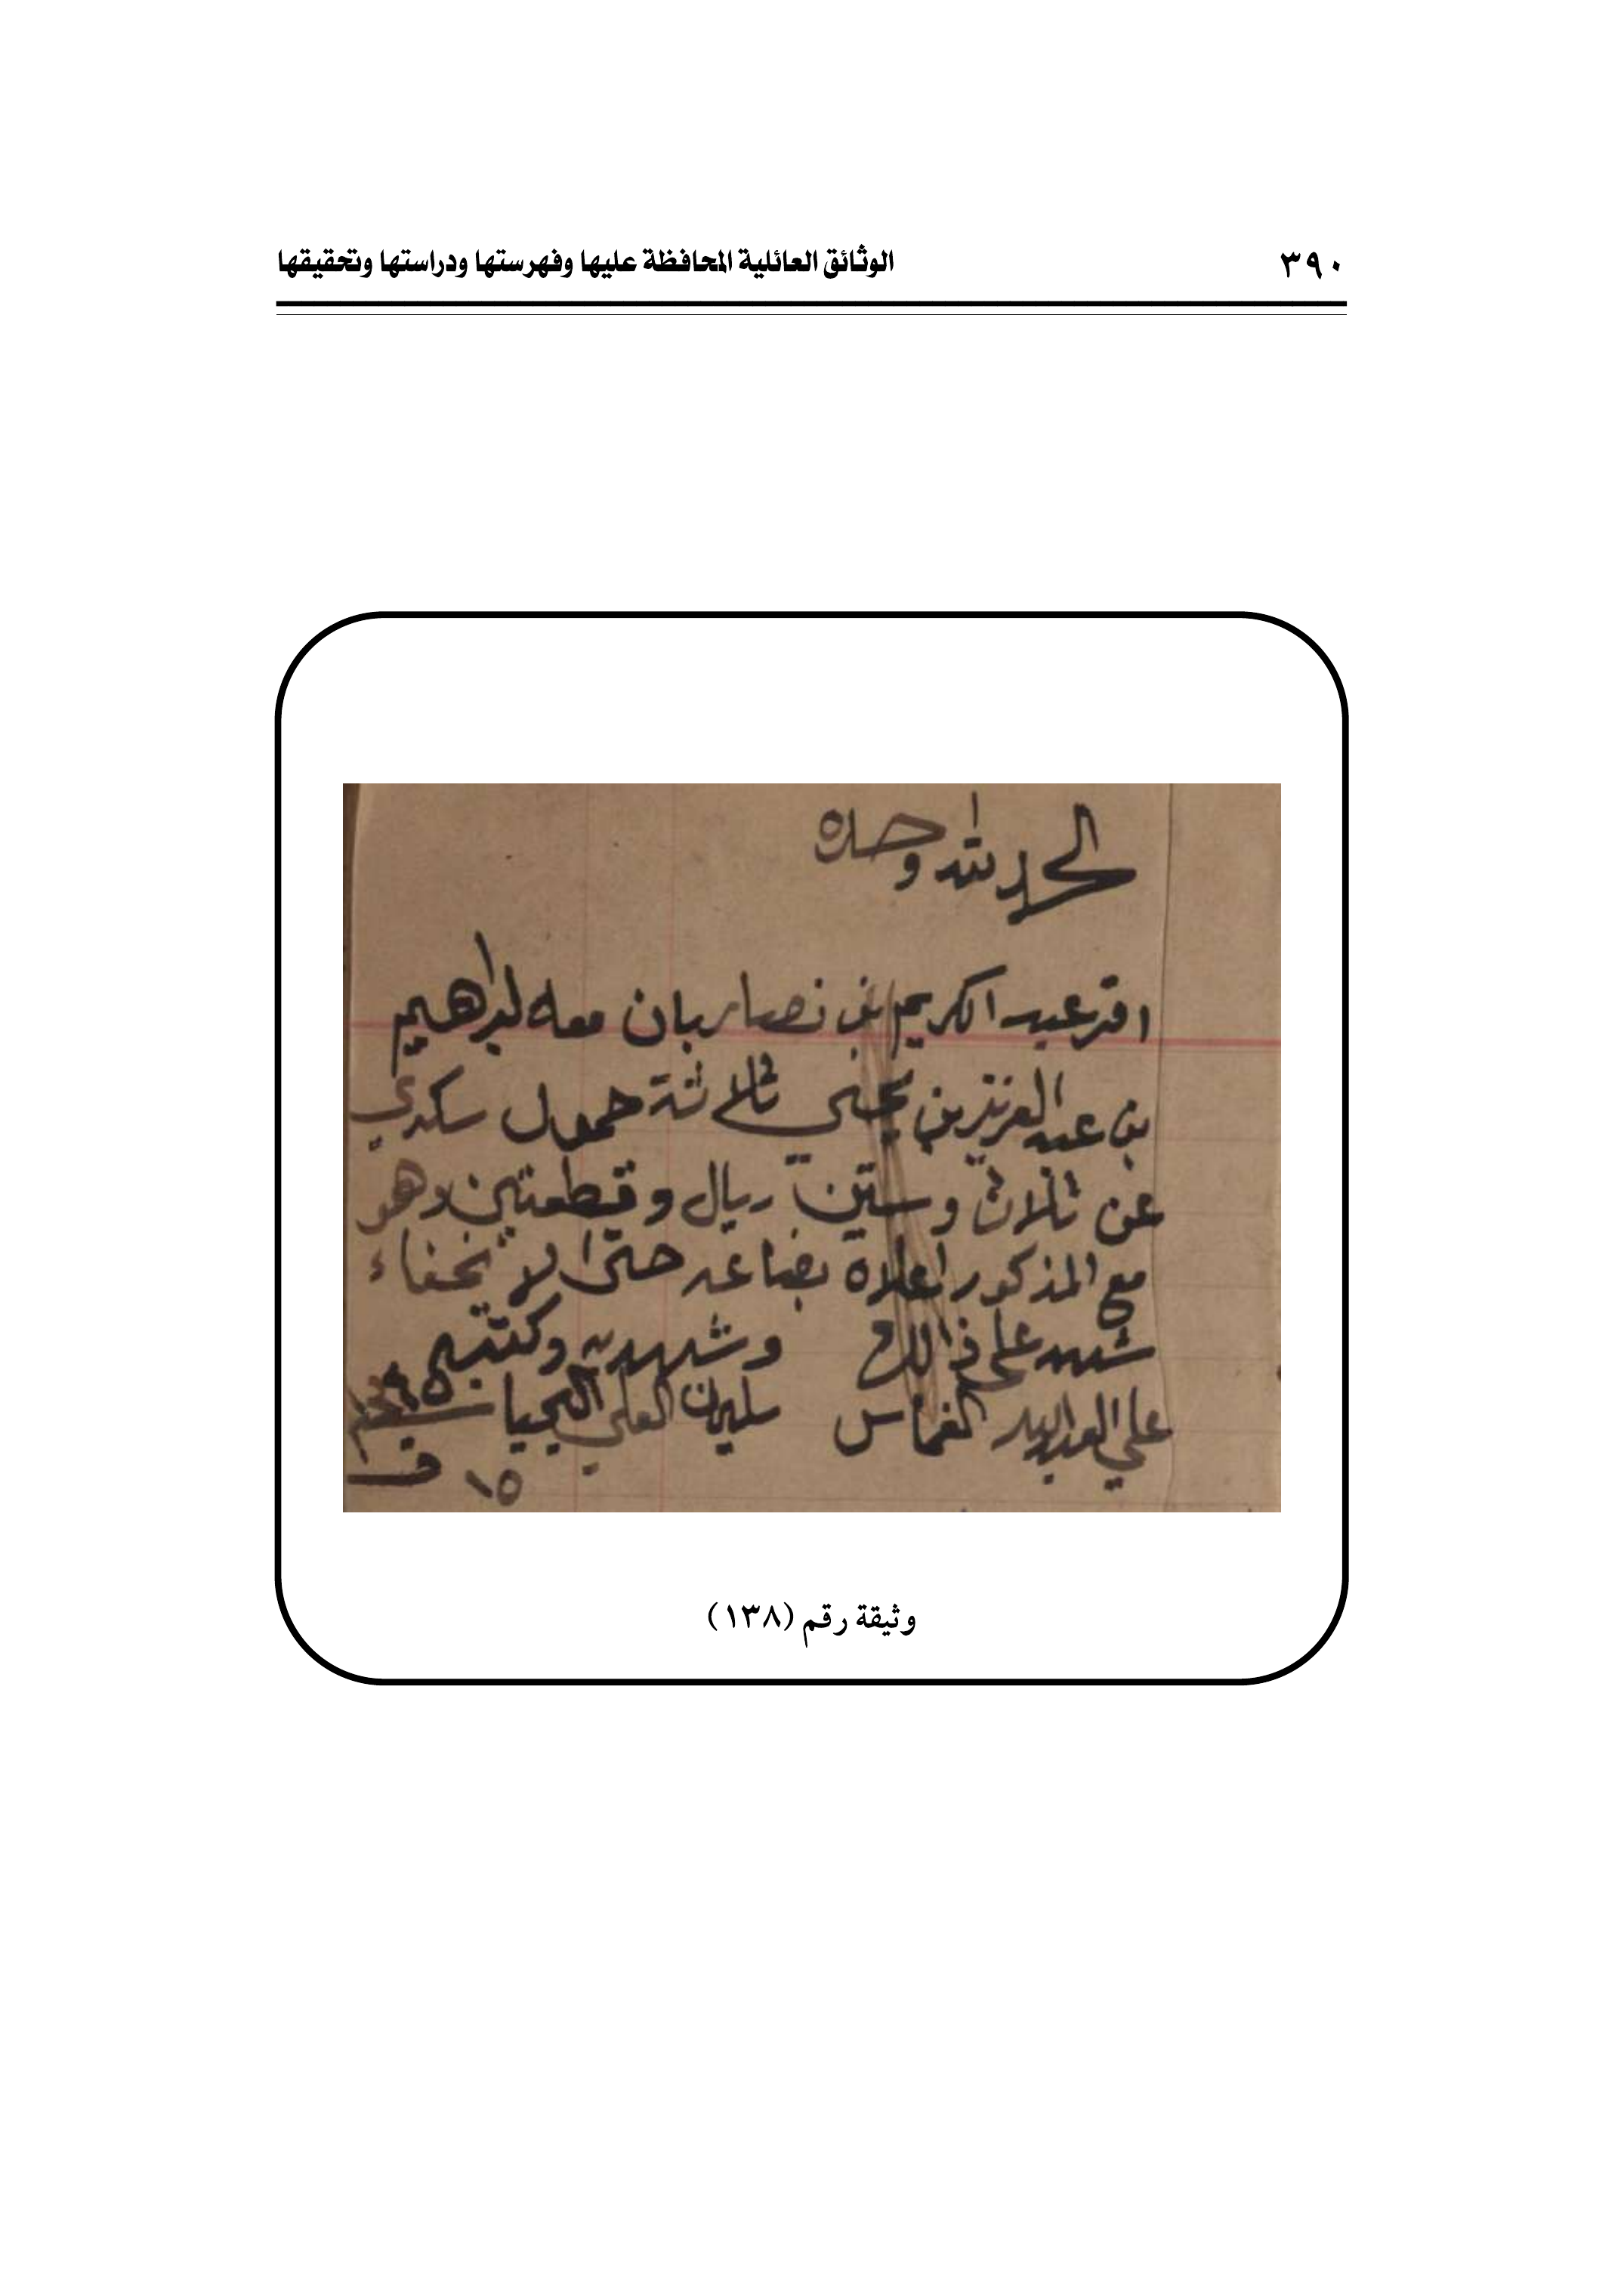 ٣٩٠
الوثائق العائلية المحافظة عليها وفهرستها ودراستها وتحقيقها
الحمد لله وحده
اقر عبد الكريم بن نصار بان معه لبراهيم
بن عبد العزيز بن يحيى ثلاثة حمول سكري
عن ثلاث وستين ريال وقطعتين وهو
مع المذكور اعلاه بضاعه حتى لا يخفاء
شهد على ذالك وشهد به وكتبه
علي العبدالله الغماس سليمن العلي اليحيا
١٥
وثيقة رقم (١٣٨)